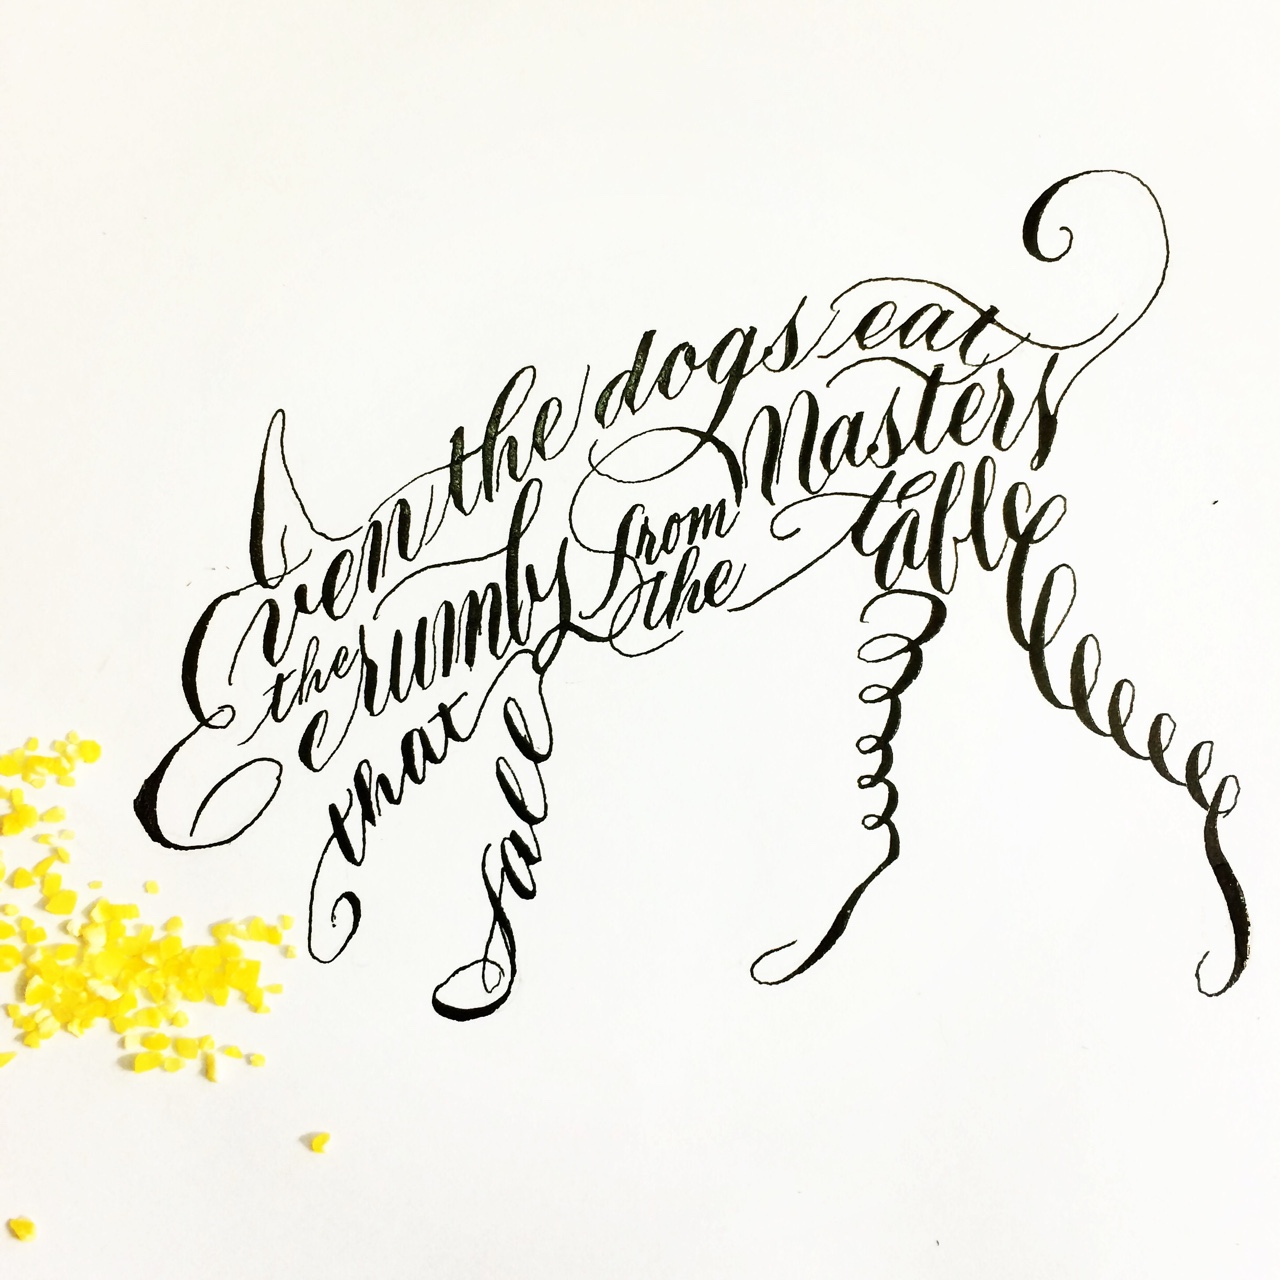 Even the dogs eat
the crumbs
that fall
from
the
Masters
table